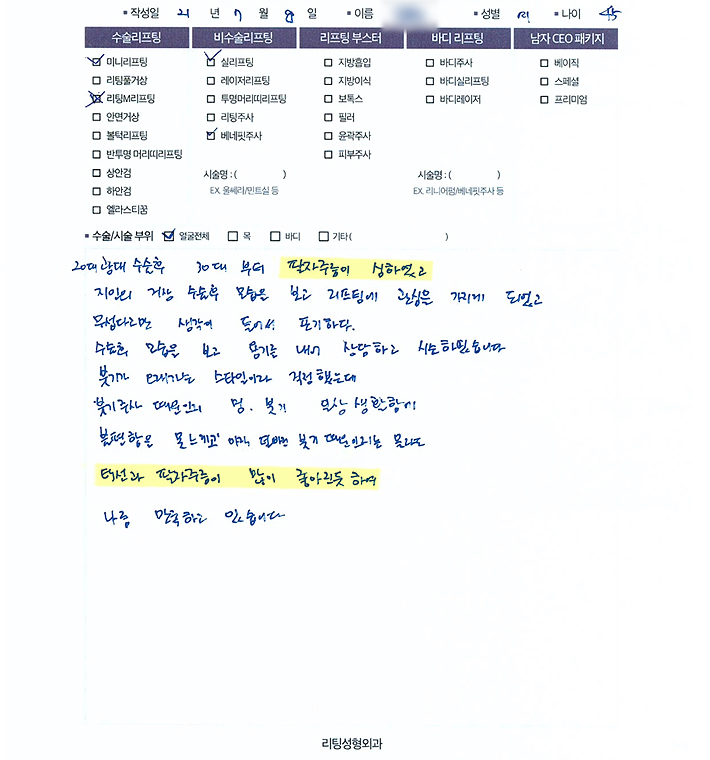 ▪ 작성일 21 년 7 월 8 일 ▪ 이름 ▪ 성별 여 ▪ 나이 45
수술리프팅 비수술리프팅 리프팅 부스터 바디 리프팅 남자 CEO 패키지
미니리프팅 실리프팅 지방흡입 바디주사 베이직
리팅풀거상 레이저리프팅 지방이식 바디실리프팅 스페셜
리팅M리프팅 투명머리띠리프팅 보톡스 바디레이저 프리미엄
안면거상 리팅주사 필러
볼턱리프팅 베네핏주사 윤곽주사
반투명 머리띠리프팅 피부주사
상안검 시술명 : ( ) 시술명 : ( )
하안검 EX. 울쎄라/민트실 등 EX. 리니어펌/베네핏주사 등
엘라스티꿈
▪ 수술/시술 부위 얼굴전체 목 바디 기타 ( )
20대 광대 수술후 30대 부터 팔자주름이 심하였고
지인의 거상 수술후 모습을 보고 리프팅에 관심을 가지게 되었고
무섭다라는 생각이 들어서 포기하다.
수술후 모습을 보고 용기를 내어 상담하고 시술하였습니다
붓기가 오래가는 스타일이라 걱정했는데
붓기주사 때문인지 멍, 붓기 일상생활함이
불편함은 못느끼고 아직 붓기 때문인지는 몰라도
턱선과 팔자주름이 많이 좋아진듯 하여
나름 만족하고 있습니다
리팅성형외과